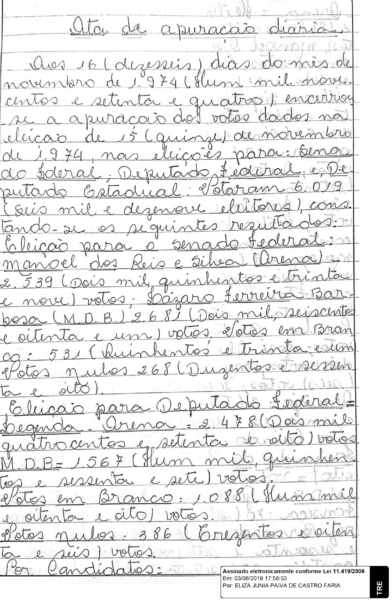 Ata da apuração diária.
Aos 16 (dezesseis) dias do mês de
novembro de 1.974 (Hum mil nove-
centos e setenta e quatro), encerrou
-se a apuração dos votos dados na
eleição de 15 (quinze) de novembro
de 1.974, nas eleições para: Sena-
do Federal, Deputado Federal, e De-
putado Estadual. Votaram 6.019
(seis mil e dezenove eleitores), cons-
tando-se os seguintes resultados:
Eleição para o senado Federal:
manoel dos Reis e Silva (Arena)
2.539 (Dois mil, quinhentos e trinta
e nove) votos; Lázaro Ferreira Bar-
bosa (M.D.B.) 2.681 (Dois mil, seiscentos
e oitenta e um) votos. Votos em Bran
co: 531 (Quinhentos e trinta e um
Votos nulos 268 (Duzentos e sessen
ta e oito)
Eleição para Deputado Federal =
Legenda - Arena = 2.478 (Dois mil
quatrocentos e setenta e oito) votos
M.D.B = 1.567 (Hum mil, quinhen-
tos e sessenta e sete) votos.
Votos em Branco: 1.088 (Hum mil
e oitenta e oito) votos.
Votos nulos: 386 (Trezentos e oiten
ta e seis) votos
Por Candidatos:
Assinado eletronicamente conforme Lei 11.419/2006
Em: 03/06/2019 17:58:53
Por: ELIZA JUNIA PAIVA DE CASTRO FARIA
TRE